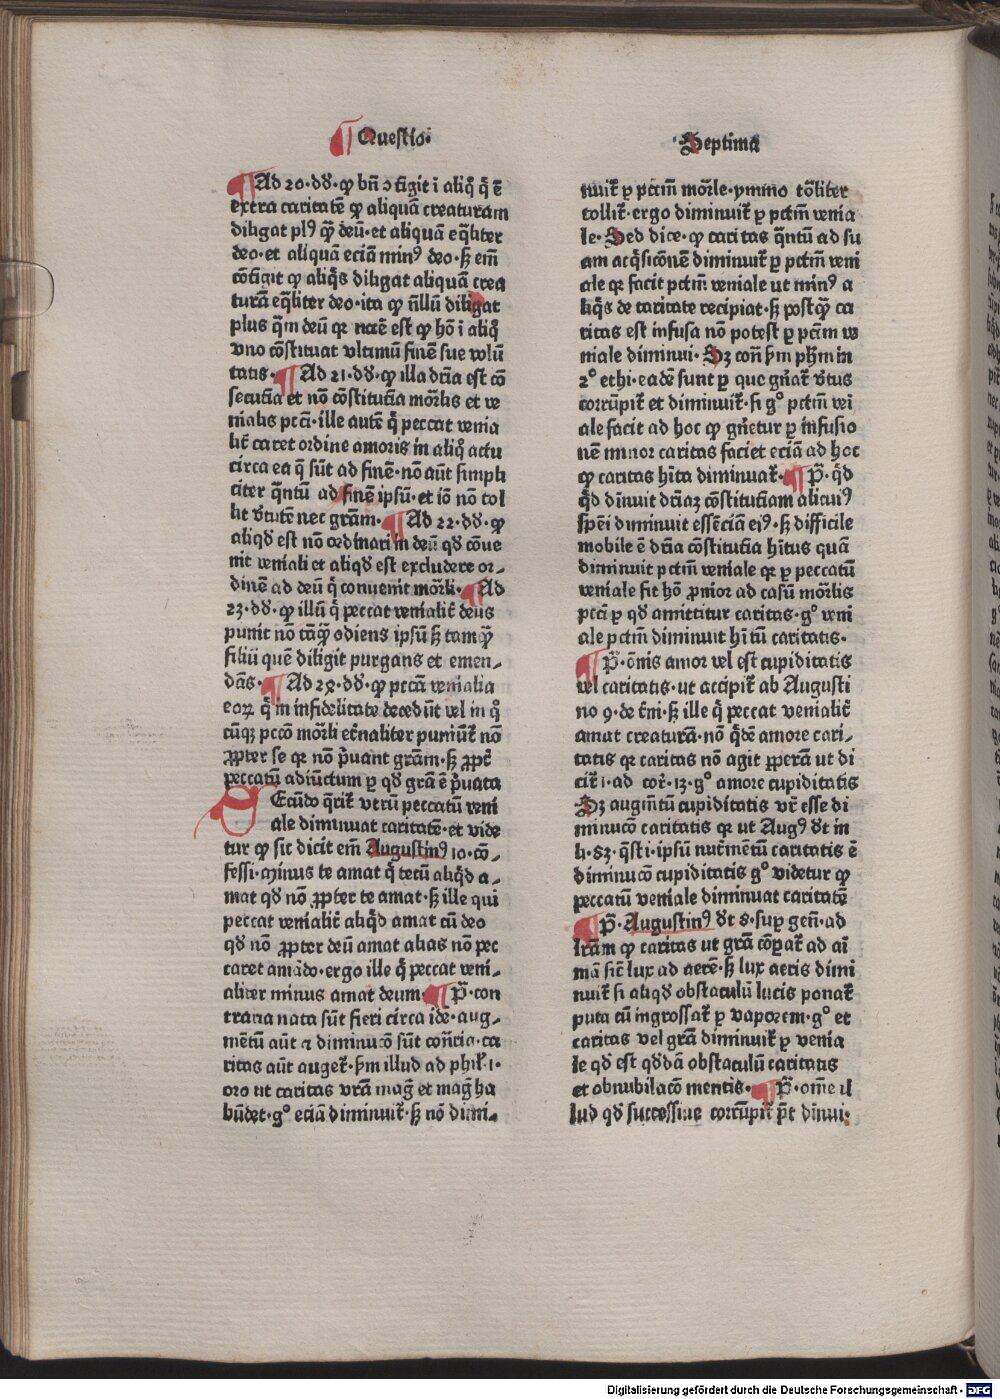 ¶ Questio·
¶ Ad 20·dd̄·ꝙ bn̄ ↄtigit ī aliq̊ q̄ ē
extra caritatē ꝙ aliquā creaturam
diligat plꝰ q̄ꝫ deū·et aliquā eq̄liter
deo·et aliquā eciā minꝰ deo·ſꝫ em̄
cōtigit ꝙ aliq̄s diligat aliquā crea
turā eq̄liter deo·ita ꝙ n̄llū diligat
plus q̄m deū qꝛ nc̄ē eſt ꝙ hō ī aliq̊
vno cōſtituat vltimū finē ſue volū
tatis· ¶ Ad 21·dd̄·ꝙ illa dr̄ia eſt cō
ſecutīa et nō cōſtitutīa mōrl̄is et ve
nialis pcc̄i·ille autē q̄ peccat venia
lit̄ caret ordine amoris in aliq̊ actu
circa ea q̄ ſūt ad finē·nō aūt ſimpli
citer q̄ntū ad finē ipſū·et iō nō tol
lit v̄tutē nec grām· ¶ Ad 22·dd̄·ꝙ
aliqd̄ eſt nō ordinari in deū qd̄ cōue
nit veniali et aliqd̄ eſt excludere or⸗
dinē ad deū q̄ conuenit mōrli· ¶ Ad
23·dd̄·ꝙ illū q̄ peccat venialit̄ deus
punit nō tāq̄ꝫ odiens ipſū ſꝫ tamq̄ꝫ
filiū quē diligit purgans et emen⸗
dās· ¶ Ad 24·dd̄·ꝙ pccā venialia
eoꝝ q̄ in infidelitate decedūt vel in q̊
cūqꝫ pccō mōrli et̄naliter puniūt̄ nō
ꝓpter ſe qꝛ nō p̄uant grām·ſꝫ ꝓpt̄
peccatū adiūctum ꝑ qd̄ grā ē p̄uata
Ecūdo q̄rit̄ vtrū peccatū veni
ale diminuat caritatē·et vide
tur ꝙ ſic dicit em̄ Auguſtinꝰ 10·cō⸗
feſſi·Minus te amat q̄ tecū aliqd̄ a⸗
mat qd̄ nō ꝓpter te amat·ſꝫ ille qui
peccat venialit̄ aliqd̄ amat cū deo
qd̄ nō ꝓpter deū amat alias nō pec
caret amādo·ergo ille q̄ peccat veni⸗
aliter minus amat deum· ¶ P̄·con
traria nata ſūt fieri circa idē·aug⸗
mētū aūt ⁊ diminucō ſūt con̄ria·ca
ritas aūt auget̄·ẜm illud ad phil̄·1·
oro ut caritas vrā maḡ et maḡ ha
būdet·gͦ eciā diminuit̄·ſꝫ nō dimi⸗
Septima
nuit̄ ꝑ pctm̄ mōrle·ymmo tōliter
tollit̄·ergo diminuit̄ ꝑ pctm̄ venia
le· Sed dice·ꝙ caritas q̄ntū ad ſu
am acq̄ſicōnē diminuit̄ ꝑ pctm̄ veni
ale qꝛ facit pctm̄ veniale ut minꝰ a
liq̄s de caritate recipiat·ſꝫ poſtq̄ꝫ ca
ritas eſt infuſa nō poteſt ꝑ pctm̄ ve
niale diminui· Sꝫ con̄ ẜm phm̄ in
2ͦ ethi·eadē ſunt ꝑ que gn̄at̄ v̄tus
corrūpit̄ et diminuit̄·ſi gͦ pctm̄ veni
ale facit ad hoc ꝙ gn̄etur ꝑ infuſio
nē minor caritas faciet eciā ad hoc
ꝙ caritas hīta diminuat̄· ¶ P̄·qd̄
qd̄ dīnuit dr̄iaꝫ cōſtitutiam alicuiꝰ
ſpēi diminuit eſſēciā eiꝰ·ſꝫ difficile
mobile ē dr̄ia cōſtitutīa hītus quā
diminuit pctm̄ veniale qꝛ ꝑ peccatū
veniale fit hō p̄nior ad caſū mōrlis
pcc̄i ꝑ qd̄ amittitur caritas·gͦ veni
ale pctm̄ diminuit hītū caritatis·
¶ P̄·ōnis amor vel eſt cupiditatis
vel caritatis·ut accipit̄ ab Auguſti
no 9·de t̄ni·ſꝫ ille q̄ peccat venialit̄
amat creaturā·nō q̄dē amore cari⸗
tatis qꝛ caritas nō agit ꝑperā ut di
cit̄ 1·ad cor̄·13·gͦ amore cupiditatis
Sꝫ augm̄tū cupiditatis vr̄ eſſe di
minucō caritatis qꝛ ut Augꝰ dt̄ in
li·83·q̄ſti·ipſū nut̄mētū caritatis ē
diminucō cupiditatis gͦ videtur ꝙ
peccatū veniale diminuat caritatē
¶ P̄·Auguſtinꝰ dt̄ 8·ſuꝑ gen̄·ad
lrām ꝙ caritas ut grā cōꝑat̄ ad ai
mā ſic̄ lux ad aerē·ſꝫ lux aeris dimi
nuit̄ ſi aliqd̄ obſtaculū lucis ponat̄
puta cū ingroſſat̄ ꝑ vaporem·gͦ et
caritas vel grā diminuit̄ ꝑ venia
le qd̄ eſt qd̄dā obſtaculū caritatis
et obnubilacō mentis· ¶ P̄·om̄e il
lud qd̄ ſucceſſiue corrūpit̄ p̄t dīnui·
Digitalisierung gefördert durch die Deutsche Forschungsgemeinschaft - DFG